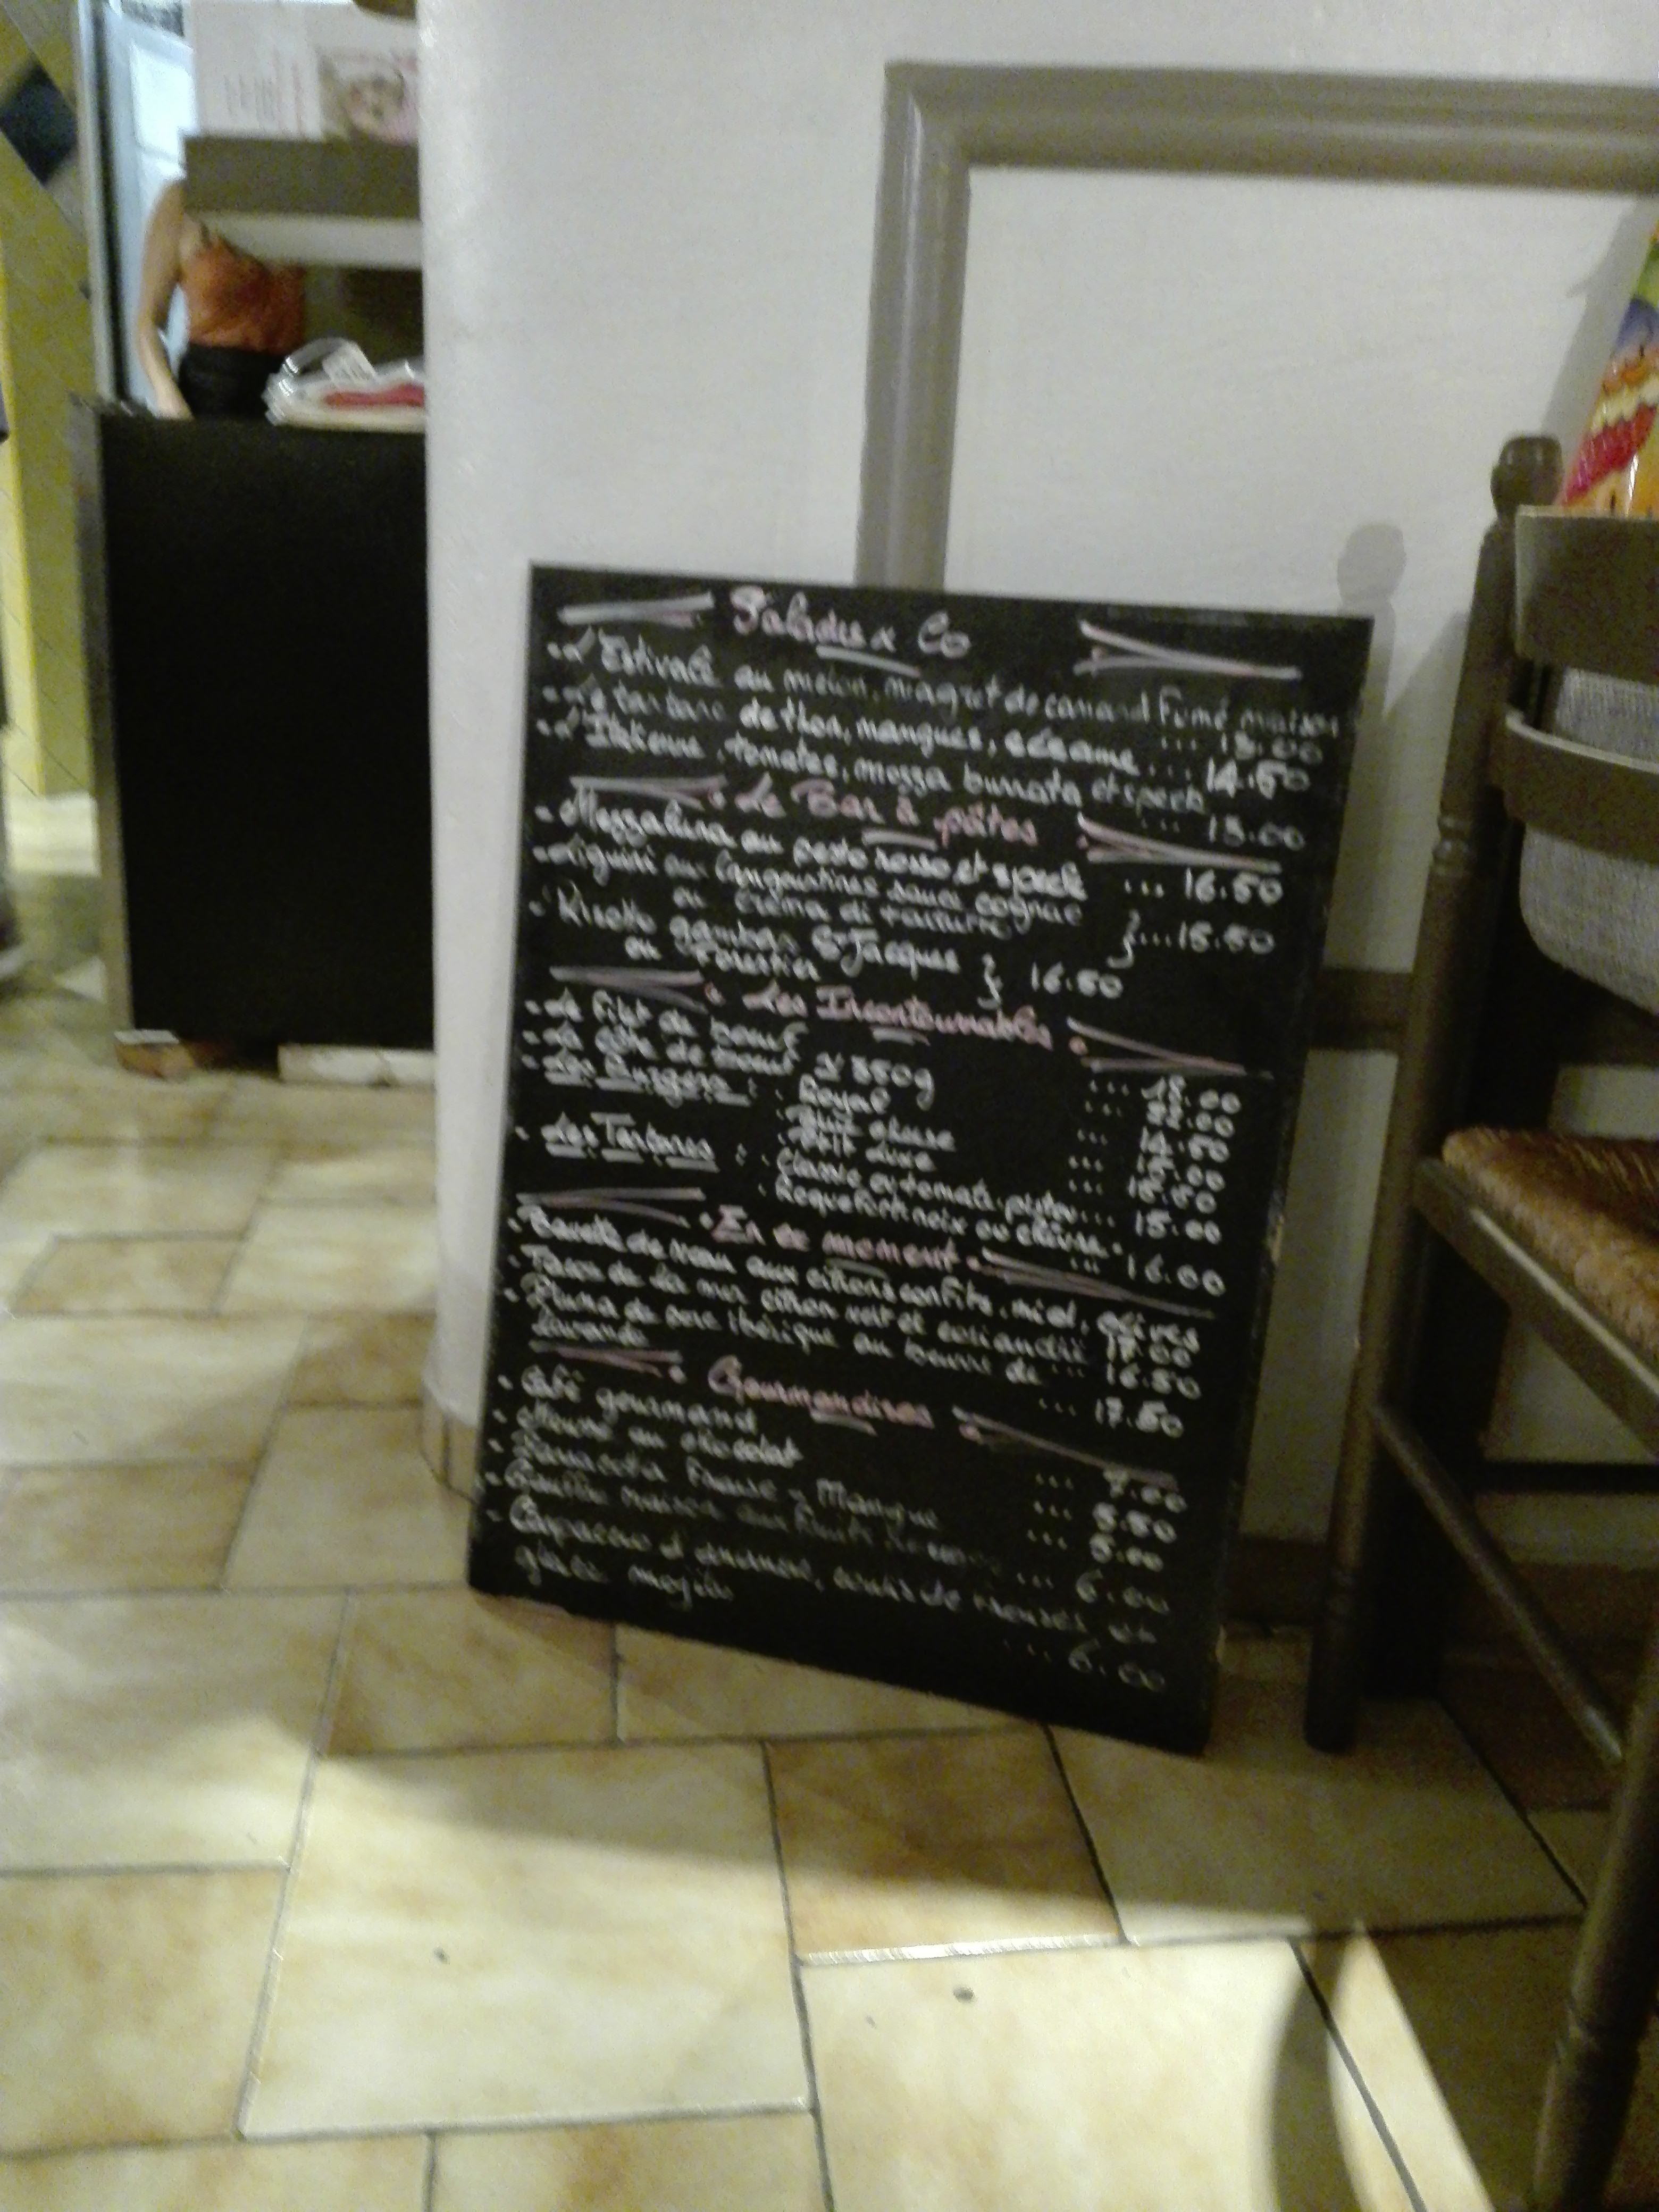 Salades & Co
- L'Estivale au melon, magret de canard fumé maison
... 13.00
- Le tartare de thon, mangues, sésame ... 14.50
- L'Italienne, tomates, mozza burrata et speck
... 13.00
Le Bar à pâtes
- Mezzaluna au pesto rosso et speck ... 16.50
- Liguini aux langoustines sauce cognac
ou crema di } ... 15.50
- Risotto gambas St Jacques
ou Forestier } 16.50
Les Incontournables
- Le filet de boeuf ... 18.00
- La côte de boeuf 350g ... 22.00
- Les Burgers : . Royal ... 14.50
... 15.00
... 15.50
- Les Tartares : . Classic ou tomate-pistou ... 15.00
. Roquefort-noix ou chèvre ... 16.00
. En ce moment .
- Bavette de veau aux citrons confits, miel, olives
17.00
- de la mer citron vert et coriandre ... 16.50
- Pluma de porc ibérique au beurre de
lavande ... 17.50
. Gourmandises .
- Café gourmand ... 7.00
- au chocolat ... 5.50
- Pannacotta Mangue ... 5.00
- maison aux fruits ... 6.00
- Carpaccio d'ananas, et
mojito ... 6.00